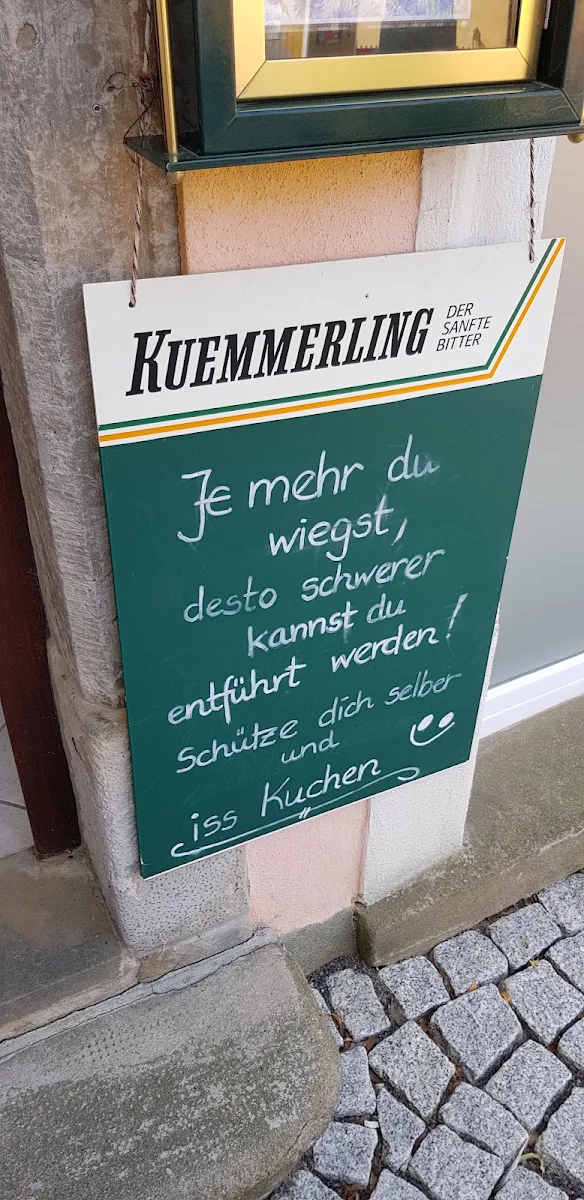 KUEMMERLING
DER
SANFTE
BITTER
Je mehr du
wiegst,
desto schwerer
kannst du
entführt werden!
Schütze dich selber
und
iss Kuchen